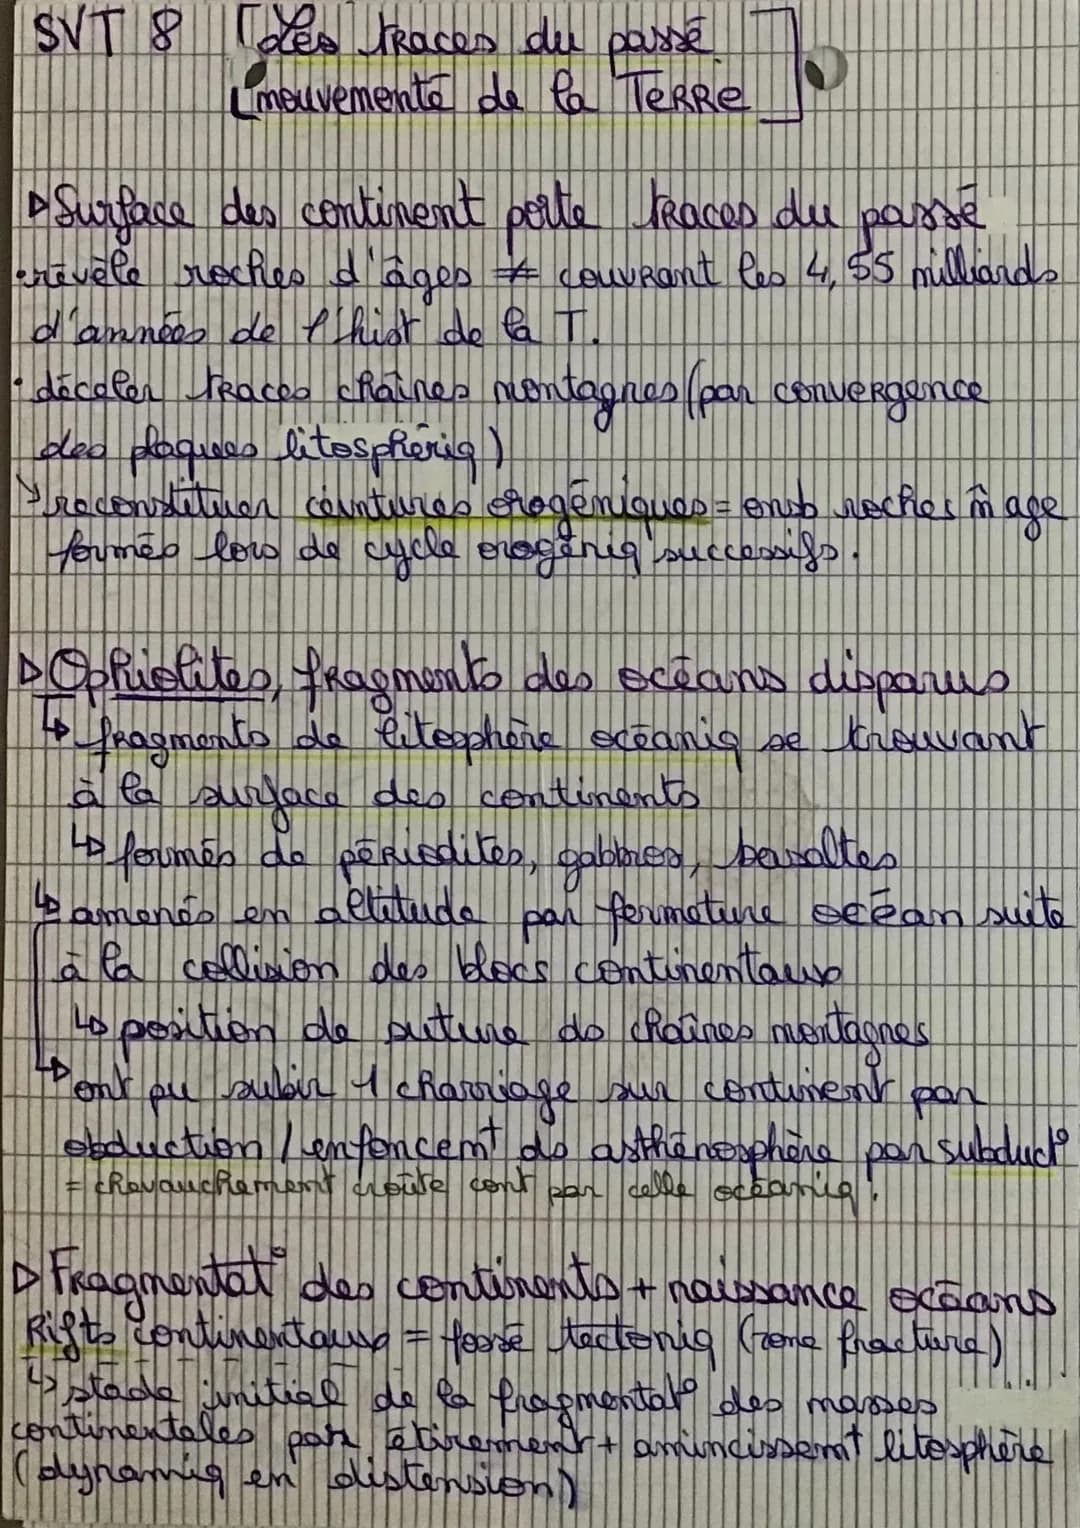 SVT 8 [Les traces du passé
mouvementé de la Terre]
▷ Surface des continent porte traces du passé
• révèle roches d'âges ≠ couvrant les 4,55 milliards
d'années de l'hist de la T.
• déceler traces chaînes montagnes (par convergence
des plaques litosphériq)
↳ reconstituer ceintures orogéniques = ensb roches m̂ age
formés lors de cycle orogéniq successifs.
▷ Ophiolites, fragments des océans disparus
↳ fragments de litosphère océaniq se trouvant
à la surface des continents
↳ formés de périodites, gabbros, basaltes
↳ amenés en altitude par fermeture océan suite
à la collision des blocs continentaux
↳ position de suture ds chaînes montagnes
↳ ont pu subir 1 charriage sur continent par
obduction / enfoncemt ds asthénosphère par subductº
= chevauchement croûte cont par celle océaniq.
▷ Fragmentatº des continents + naissance océans
Rifts continentaux = fossé tectoniq (zone fracture)
↳ stade initial de la fragmentatº des masses
continentales par étirement + amincissemt litosphère
(dynamiq en distension)